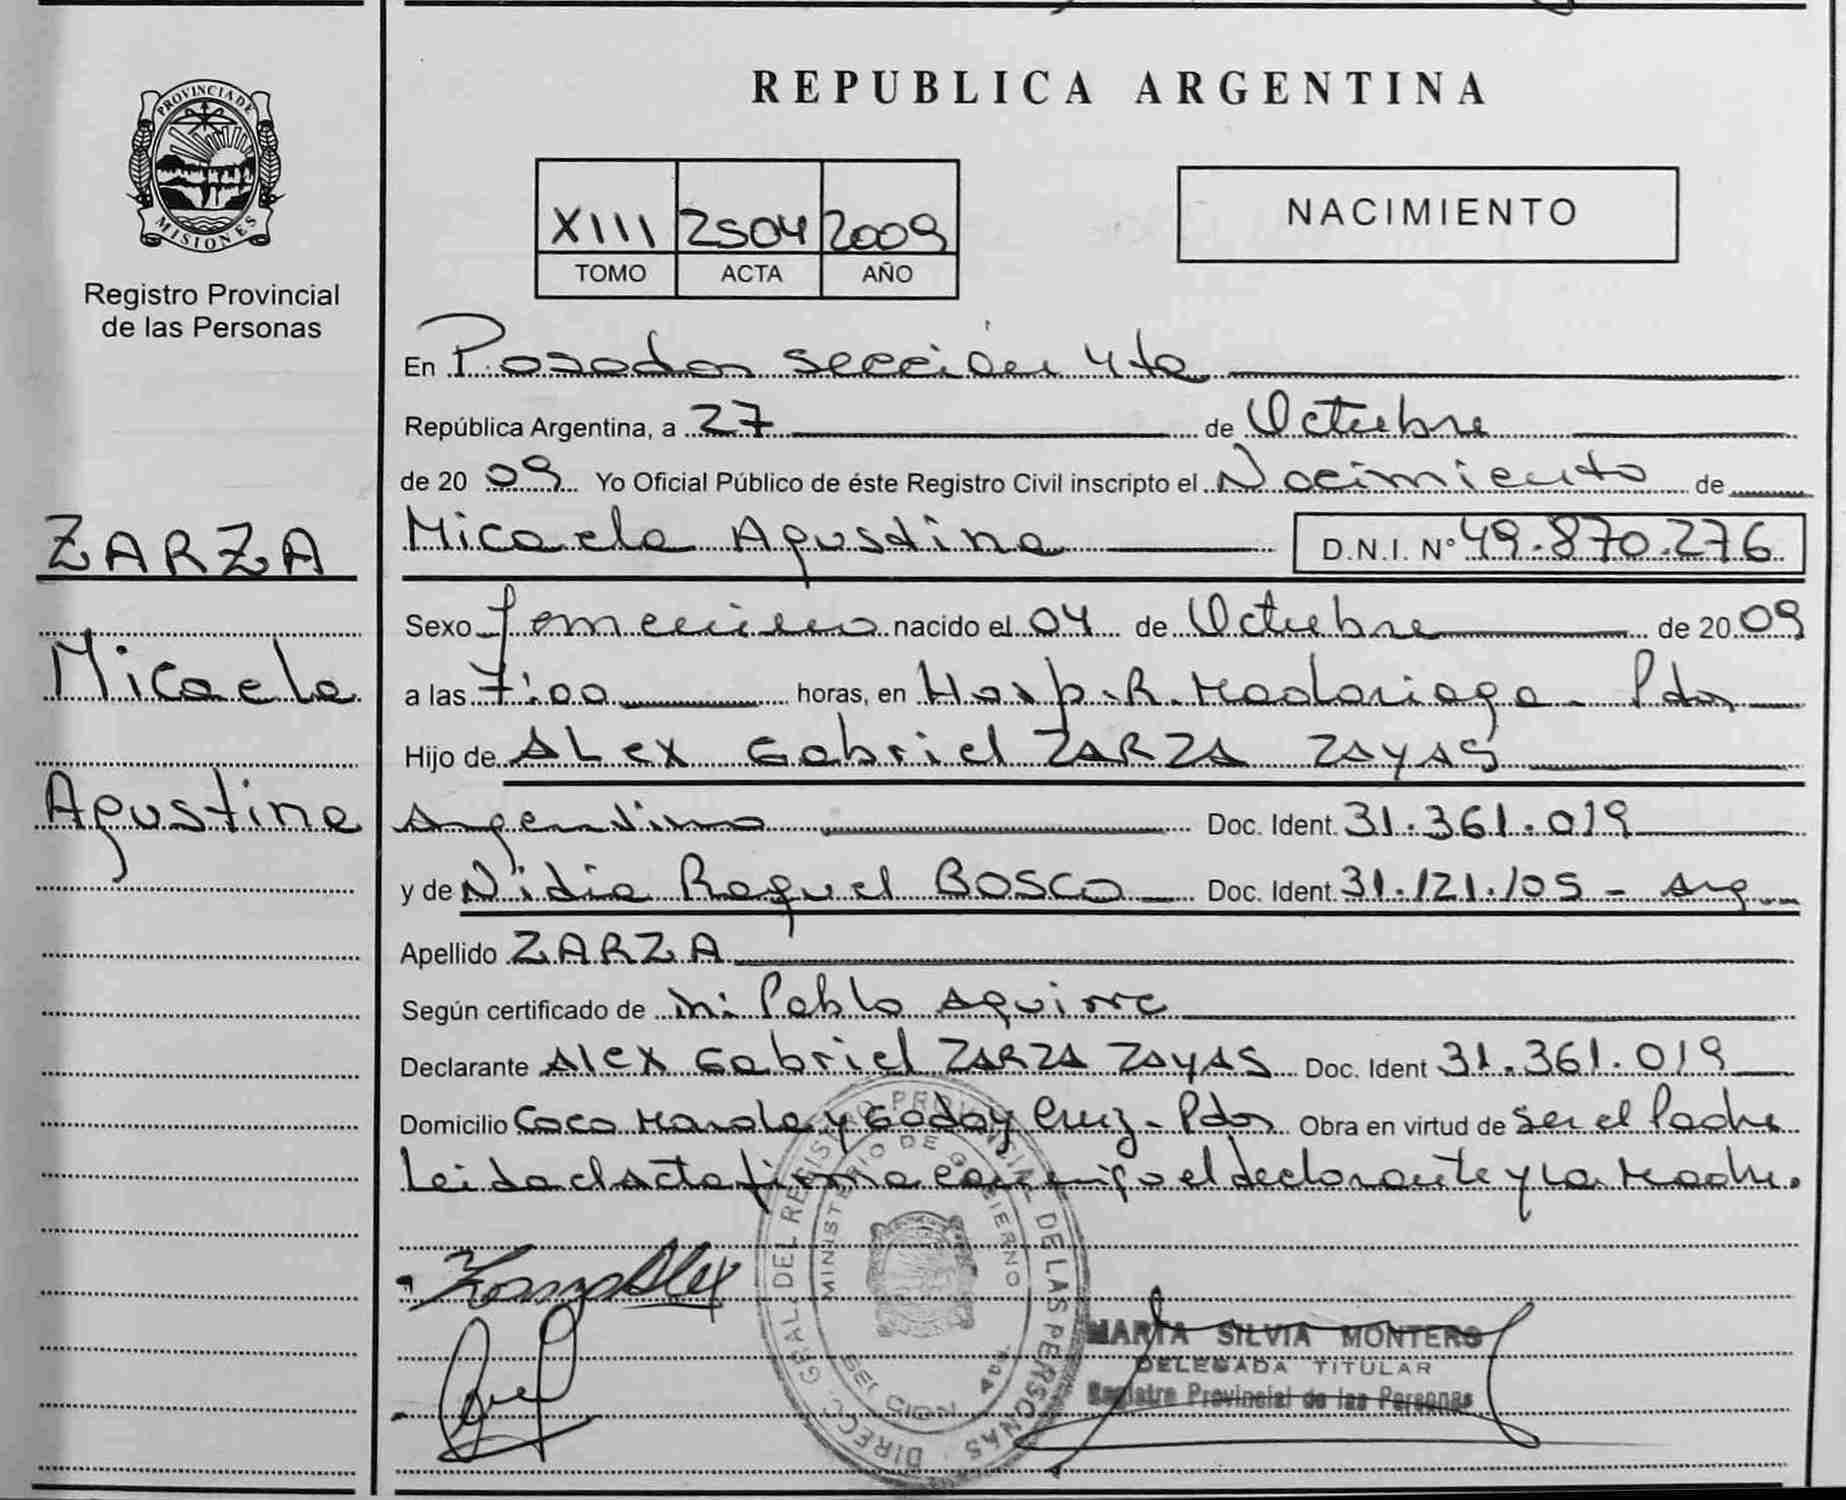 PROVINCIA DE
MISIONES
Registro Provincial
de las Personas
ZARZA
Micaela
Agustina
REPUBLICA ARGENTINA
XIII 2504 2009
TOMO ACTA AÑO
NACIMIENTO
En Posadas sección 4ta
República Argentina, a 27 de Octubre
de 20 09 Yo Oficial Público de éste Registro Civil inscripto el Nacimiento de
Micaela Agustina D.N.I. Nº 49.870.276
Sexo femenino nacido el 04 de Octubre de 20 09
a las 7:00 horas, en Hosp. R. Madariaga - Pdas
Hijo de ALEX Gabriel ZARZA ZAYAS
Argentino Doc. Ident. 31.361.019
y de Nidia Raquel BOSCO Doc. Ident. 31.121.105 - Arg
Apellido ZARZA
Según certificado de Pablo Aguirre
Declarante Alex Gabriel ZARZA ZAYAS Doc. Ident 31.361.019
Domicilio Coco Marola y Godoy Cruz - Pdas Obra en virtud de ser el Padre
Leida el acta firma conmigo el declarante y la Madre.
Zarza Alex
DIRECC. GRAL. DEL REGISTRO PROVINCIAL DE LAS PERSONAS
MINISTERIO DE GOBIERNO
MARTA SILVIA MONTERO
DELEGADA TITULAR
Registro Provincial de las Personas